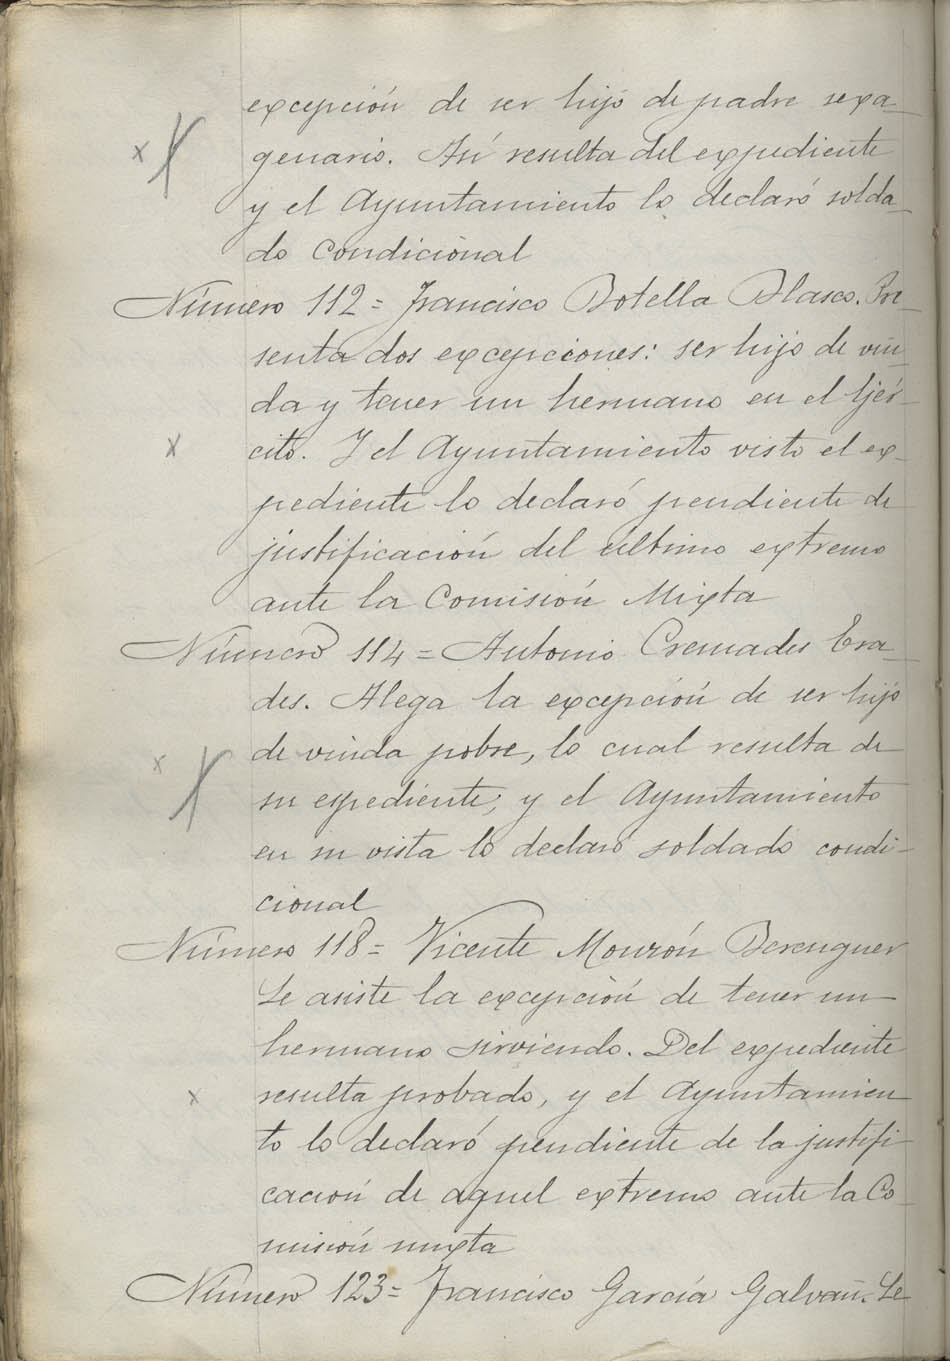 excepción de ser hijo de padre sexa-
genario. Así resulta del expediente
y el Ayuntamiento lo declaró solda-
do condicional
Número 112 = Francisco Botella Blasco. Pre-
senta dos excepciones: ser hijo de viu-
da y tener un hermano en el Ejér-
cito. Y el Ayuntamiento visto el ex-
pediente lo declaró pendiente de
justificación del último extremo
ante la Comisión Mixta
Número 114 = Antonio Cremades Era-
des. Alega la excepción de ser hijo
de viuda pobre, lo cual resulta de
su expediente; y el Ayuntamiento
en su vista lo declaró soldado condi-
cional
Número 118 = Vicente Monzón Berenguer
Le asiste la excepción de tener un
hermano sirviendo. Del expediente
resulta probado, y el Ayuntamien
to lo declaró pendiente de la justifi-
cación de aquel extremo ante la Co-
misión mixta
Número 123 = Francisco García Galvañ. Le